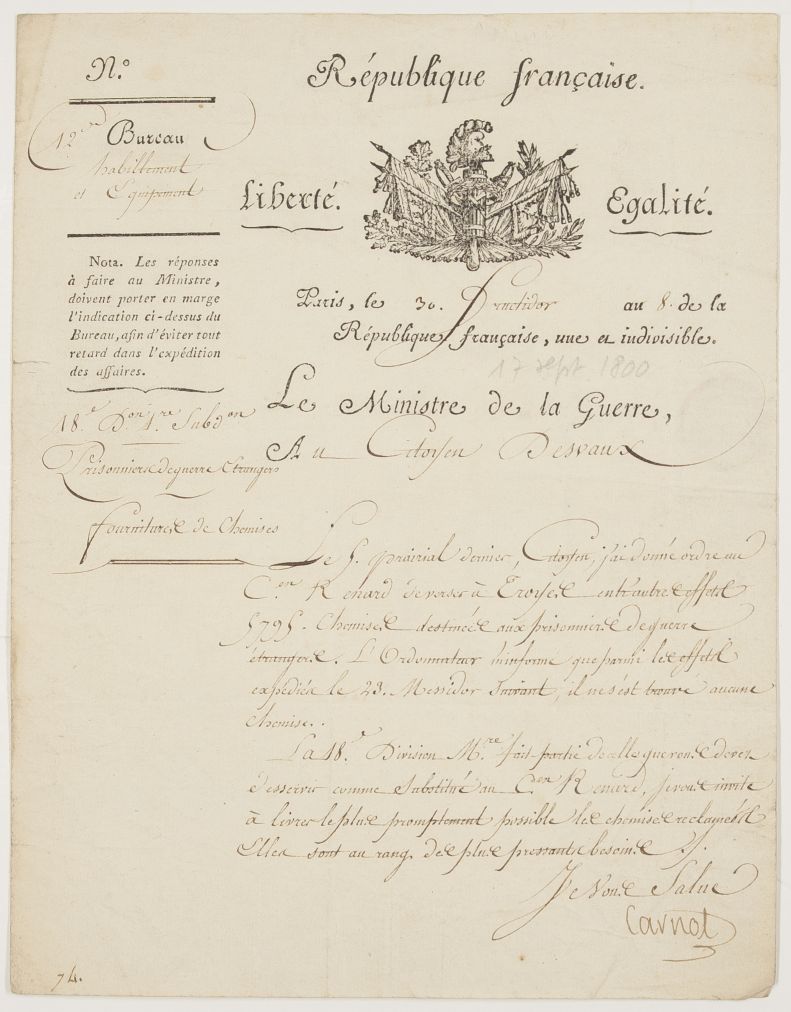 N.°
République française.
12e
Bureau
habillement
et Equipement
Liberté.
Egalité.
Nota. Les réponses
à faire au Ministre,
doivent porter en marge
l'indication ci-dessus du
Bureau, afin d'éviter tout
retard dans l'expédition
des affaires.
Paris, le 30. Fructidor an 8. de la
République française, une et indivisible.
17 sept 1800
Le Ministre de la Guerre,
Au Citoyen Desvaux
18.e D.on 1.re Subd.on
Prisonniers de guerre Etrangers
fournitures de Chemises
Le 5. prairial dernier, Citoyen, j'ai donné ordre au
C.en Renard de verser à Troyes entr'autres effets
5795. Chemises destinées aux prisonniers de guerre
étrangers. L'Ordonnateur m'informe que parmi les effets
expédiés le 23. Messidor suivant, il ne s'est trouvé aucune
chemise.
La 18.e Division M.re fait partie de celles que vous devez
desservir comme substitué au C.en Renard, je vous invite
à livrer le plus promptement possible les chemises reclamées
Elles sont au rang des plus pressants besoins.
Je Vous Salue
Carnot
74.